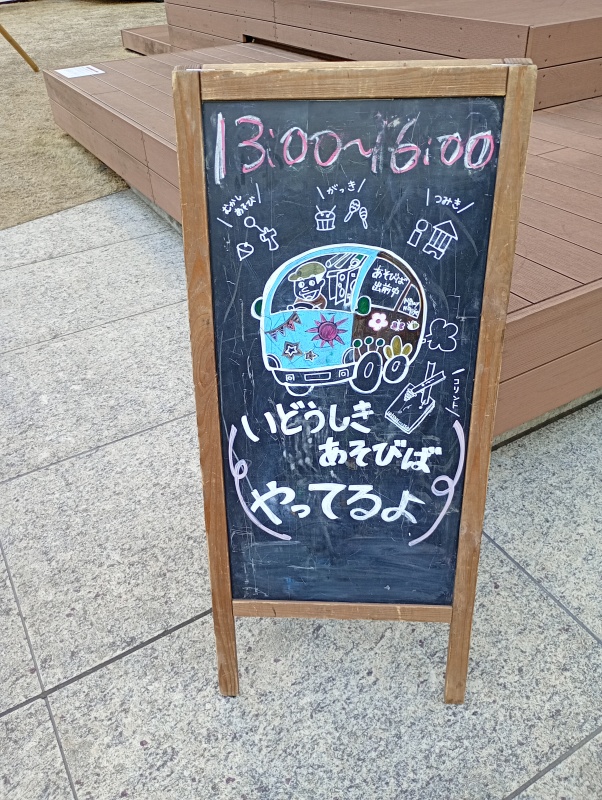 13:00〜16:00
むかし
あそび
がっき
つみき
あそびば
出前中
コリント
いどうしき
あそびば
やってるよ